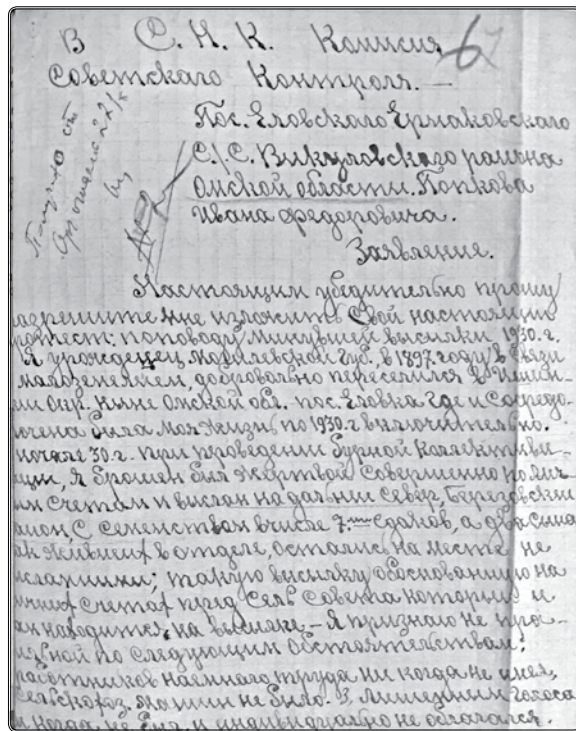 В С. Н. К. Комисия 67
Советского Контроля. —
Пос. Еловского Ермаковского
С/С. Викуловского района
Омской области. Попкова
Ивана Федоровича.
Получено от
22/X
Заявление.
Настоящим убедительно прошу
разрешите мне изложить свой настоящий
протест: поповоду минувшей высылки 1930.г.
Я урожденец Могилевской Губ., в 1897. году в связи
малоземелием, добровольно переселился в Ишим-
ский Окр. Ныне Омской обл. пос. Еловка где и сосредо-
точена была моя жизнь по 1930.г включительно.
вначале 30.г. при проведении бурной коллективи-
зации, я брошен был жертвой совершенно по лич-
ым счетам и выслан на дальний север, Березовский
район, С семейством вчисле 7-ми едоков, а два сына
как живших в отделе, остались на месте не
высланными; такую высылку обоснованную на
личных счетах пред. Сель совета который и
сам находится на высылке – я признаю не пра-
вильной по следующим обстоятельствам:
работников наемного труда ни когда не имел,
сельскохоз. машин не было. 3, лишенным голоса
ни когда не был, и индивидуально не облагался.